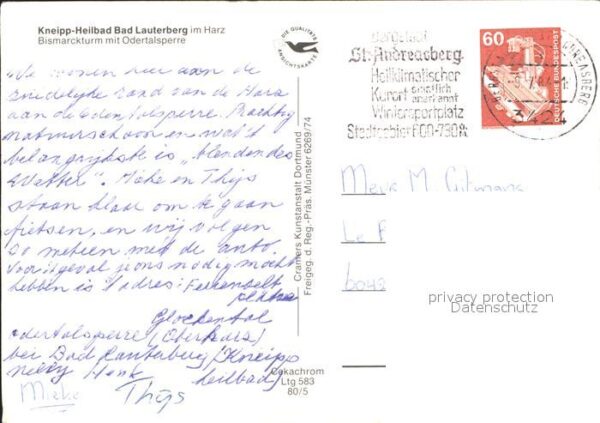 Kneipp-Heilbad Bad Lauterberg im Harz
Bismarckturm mit Odertalsperre
DIE QUALITÄTS ANSICHTSKARTE
We wonen hier aan de
zuidelijke rand van de Harz
aan de Odertalsperre. Prachtig
natuurschoon en wat 't
belangrijkste is "blendendes
Wetter". Mieke en Thijs
staan klaar om te gaan
fietsen, en wij volgen
zo meteen met de auto.
Voor 't geval je ons nodig mocht
hebben is 't adres: Ferienzelt
Glockental
odertalsperre (Oberharz)
bei Bad Lauterberg (Kneipp
heilbad)
Nelly Henk
Mieke Thijs
Cramers Kunstanstalt Dortmund
Freigeg. d. Reg.-Präs. Münster 6269/74
Cekachrom
Ltg 583
80/5
Bergstadt
St. Andreasberg
Heilklimatischer
Kurort staatlich anerkannt
Wintersportplatz
Stadtgebiet 600-730 m
60
DEUTSCHE BUNDESPOST
ANDREASBERG
3424
Mevr M.
Le F
6042
privacy protection
Datenschutz